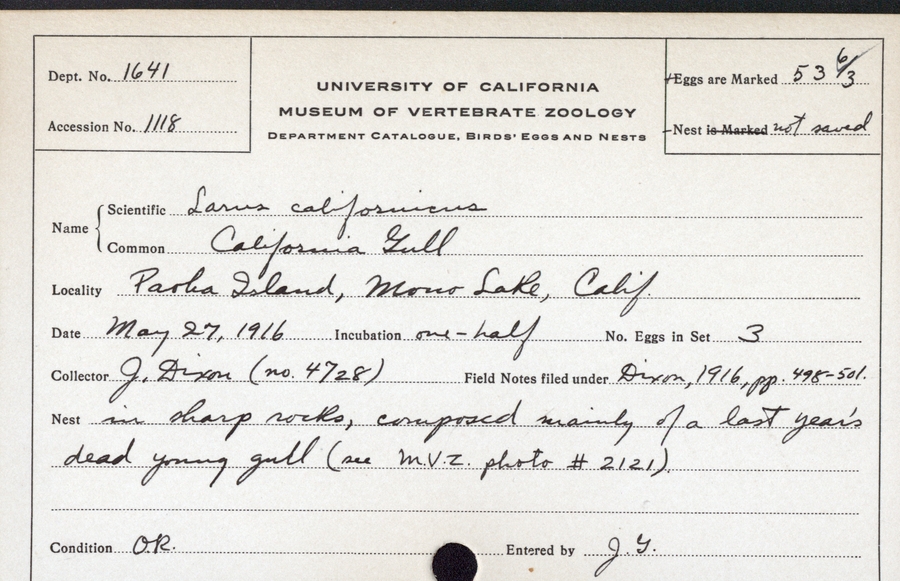 Dept. No. 1641
Accession No. 1118
UNIVERSITY OF CALIFORNIA
MUSEUM OF VERTEBRATE ZOOLOGY
DEPARTMENT CATALOGUE, BIRDS' EGGS AND NESTS
Eggs are Marked 53 6/3
Nest is Marked not saved
Name { Scientific Larus californicus
Common California Gull
Locality Paoha Island, Mono Lake, Calif.
Date May 27, 1916 Incubation one-half No. Eggs in Set 3
Collector J. Dixon (no. 4728) Field Notes filed under Dixon, 1916, pp. 498-501.
Nest in sharp rocks, composed mainly of a last year's
dead young gull (see M.V.Z. photo # 2121).
Condition O.K. Entered by J.G.